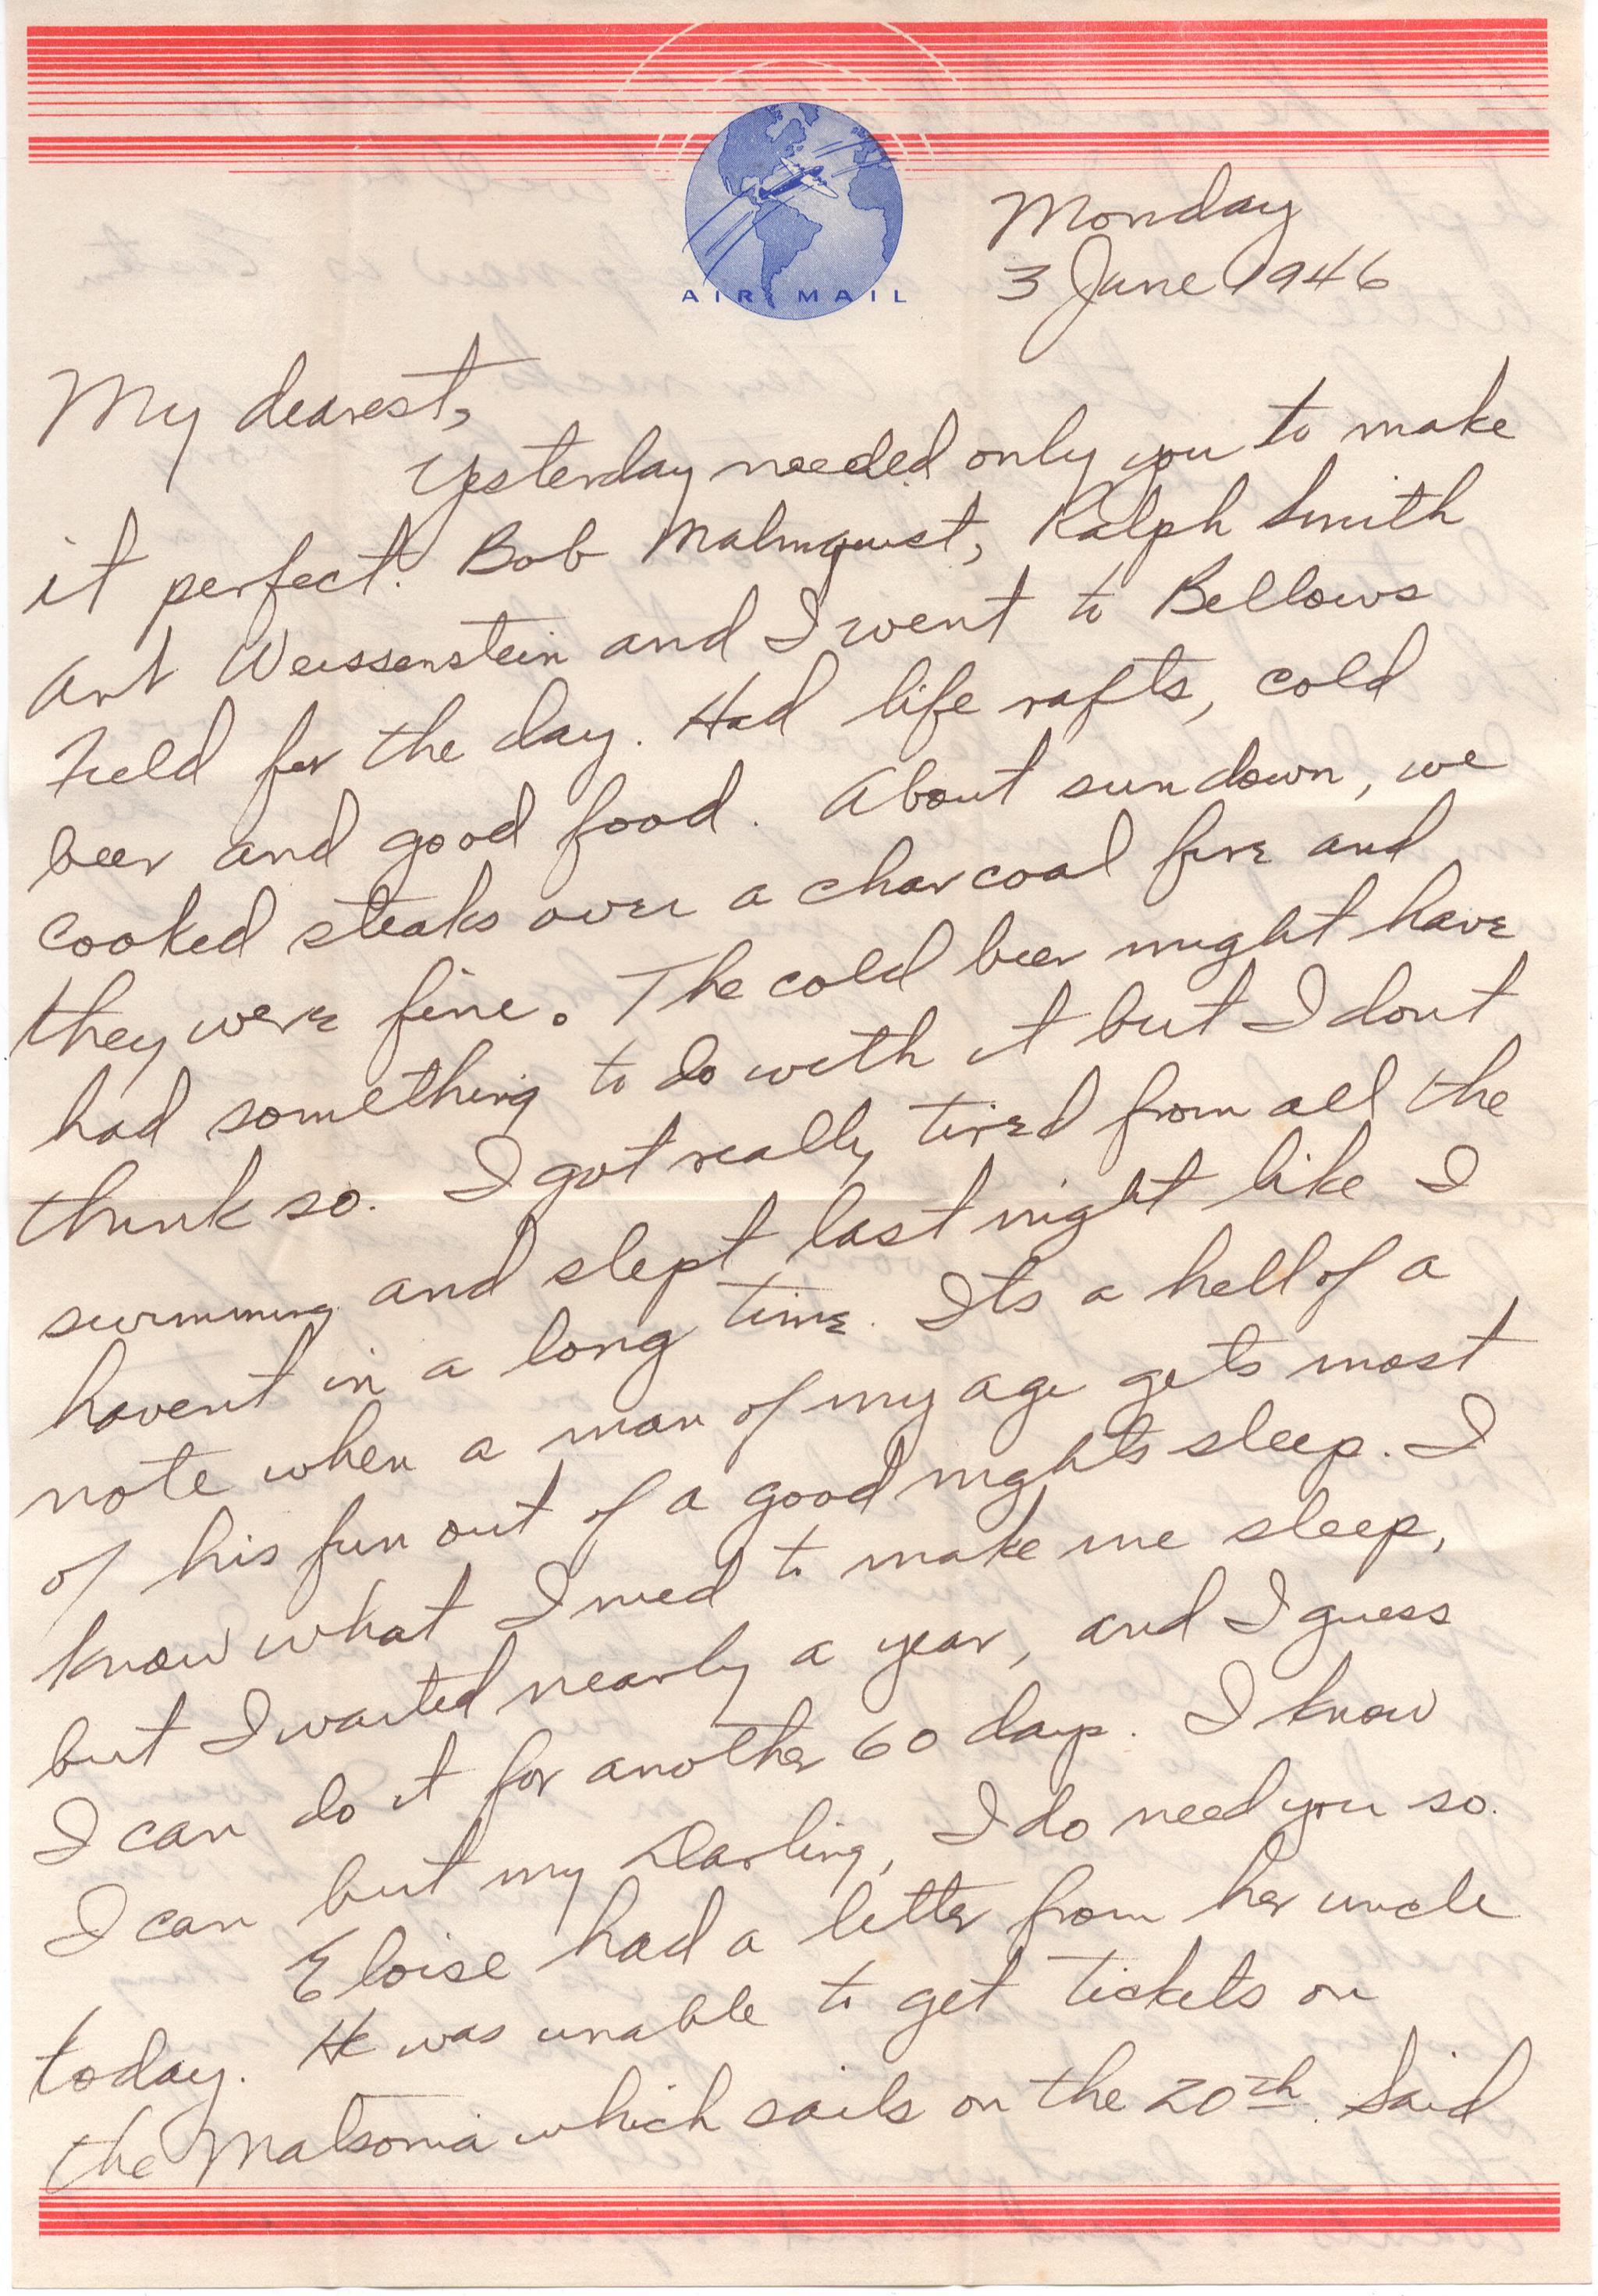 AIR MAIL
Monday
3 June 1946
My dearest,
Yesterday needed only you to make
it perfect. Bob Malmquist, Ralph Smith
Art Weissenstein and I went to Bellows
Field for the day. Had life rafts, cold
beer and good food. About sundown, we
cooked steaks over a charcoal fire and
they were fine. The cold beer might have
had something to do with it but I dont
think so. I got really tired from all the
swimming and slept last night like I
havent in a long time. Its a hell of a
note when a man of my age gets most
of his fun out of a good nights sleep. I
know what I need to make me sleep,
but I waited nearly a year, and I guess
I can do it for another 60 days. I know
I can but my Darling, I do need you so.
Eloise had a letter from her uncle
today. He was unable to get tickets on
the Matsonia which sails on the 20th. Said